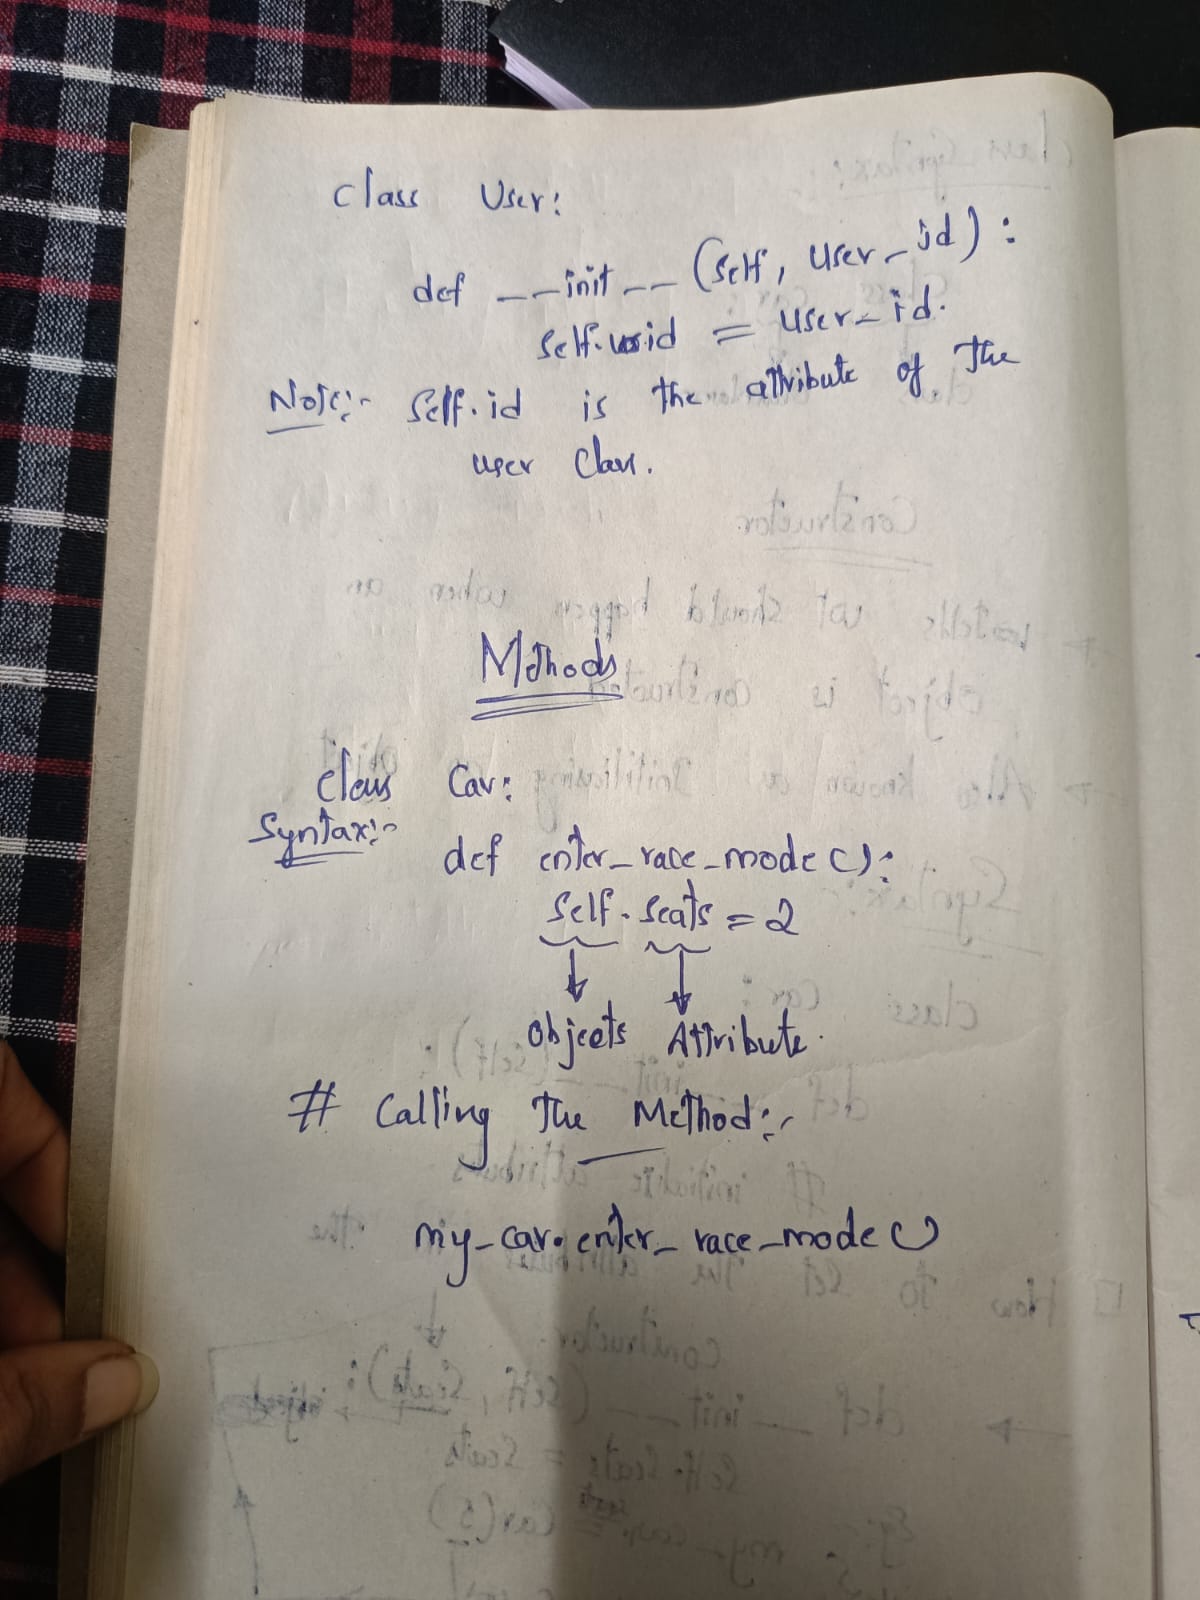 class User:
def __init__ (self, user_id):
self.id = user_id.
Note:- self.id is the attribute of the
user class.
Methods
class Car:
Syntax:-
def enter_race_mode():
self.seats = 2
objects Attribute.
# Calling the Method:-
my_car.enter_race_mode()